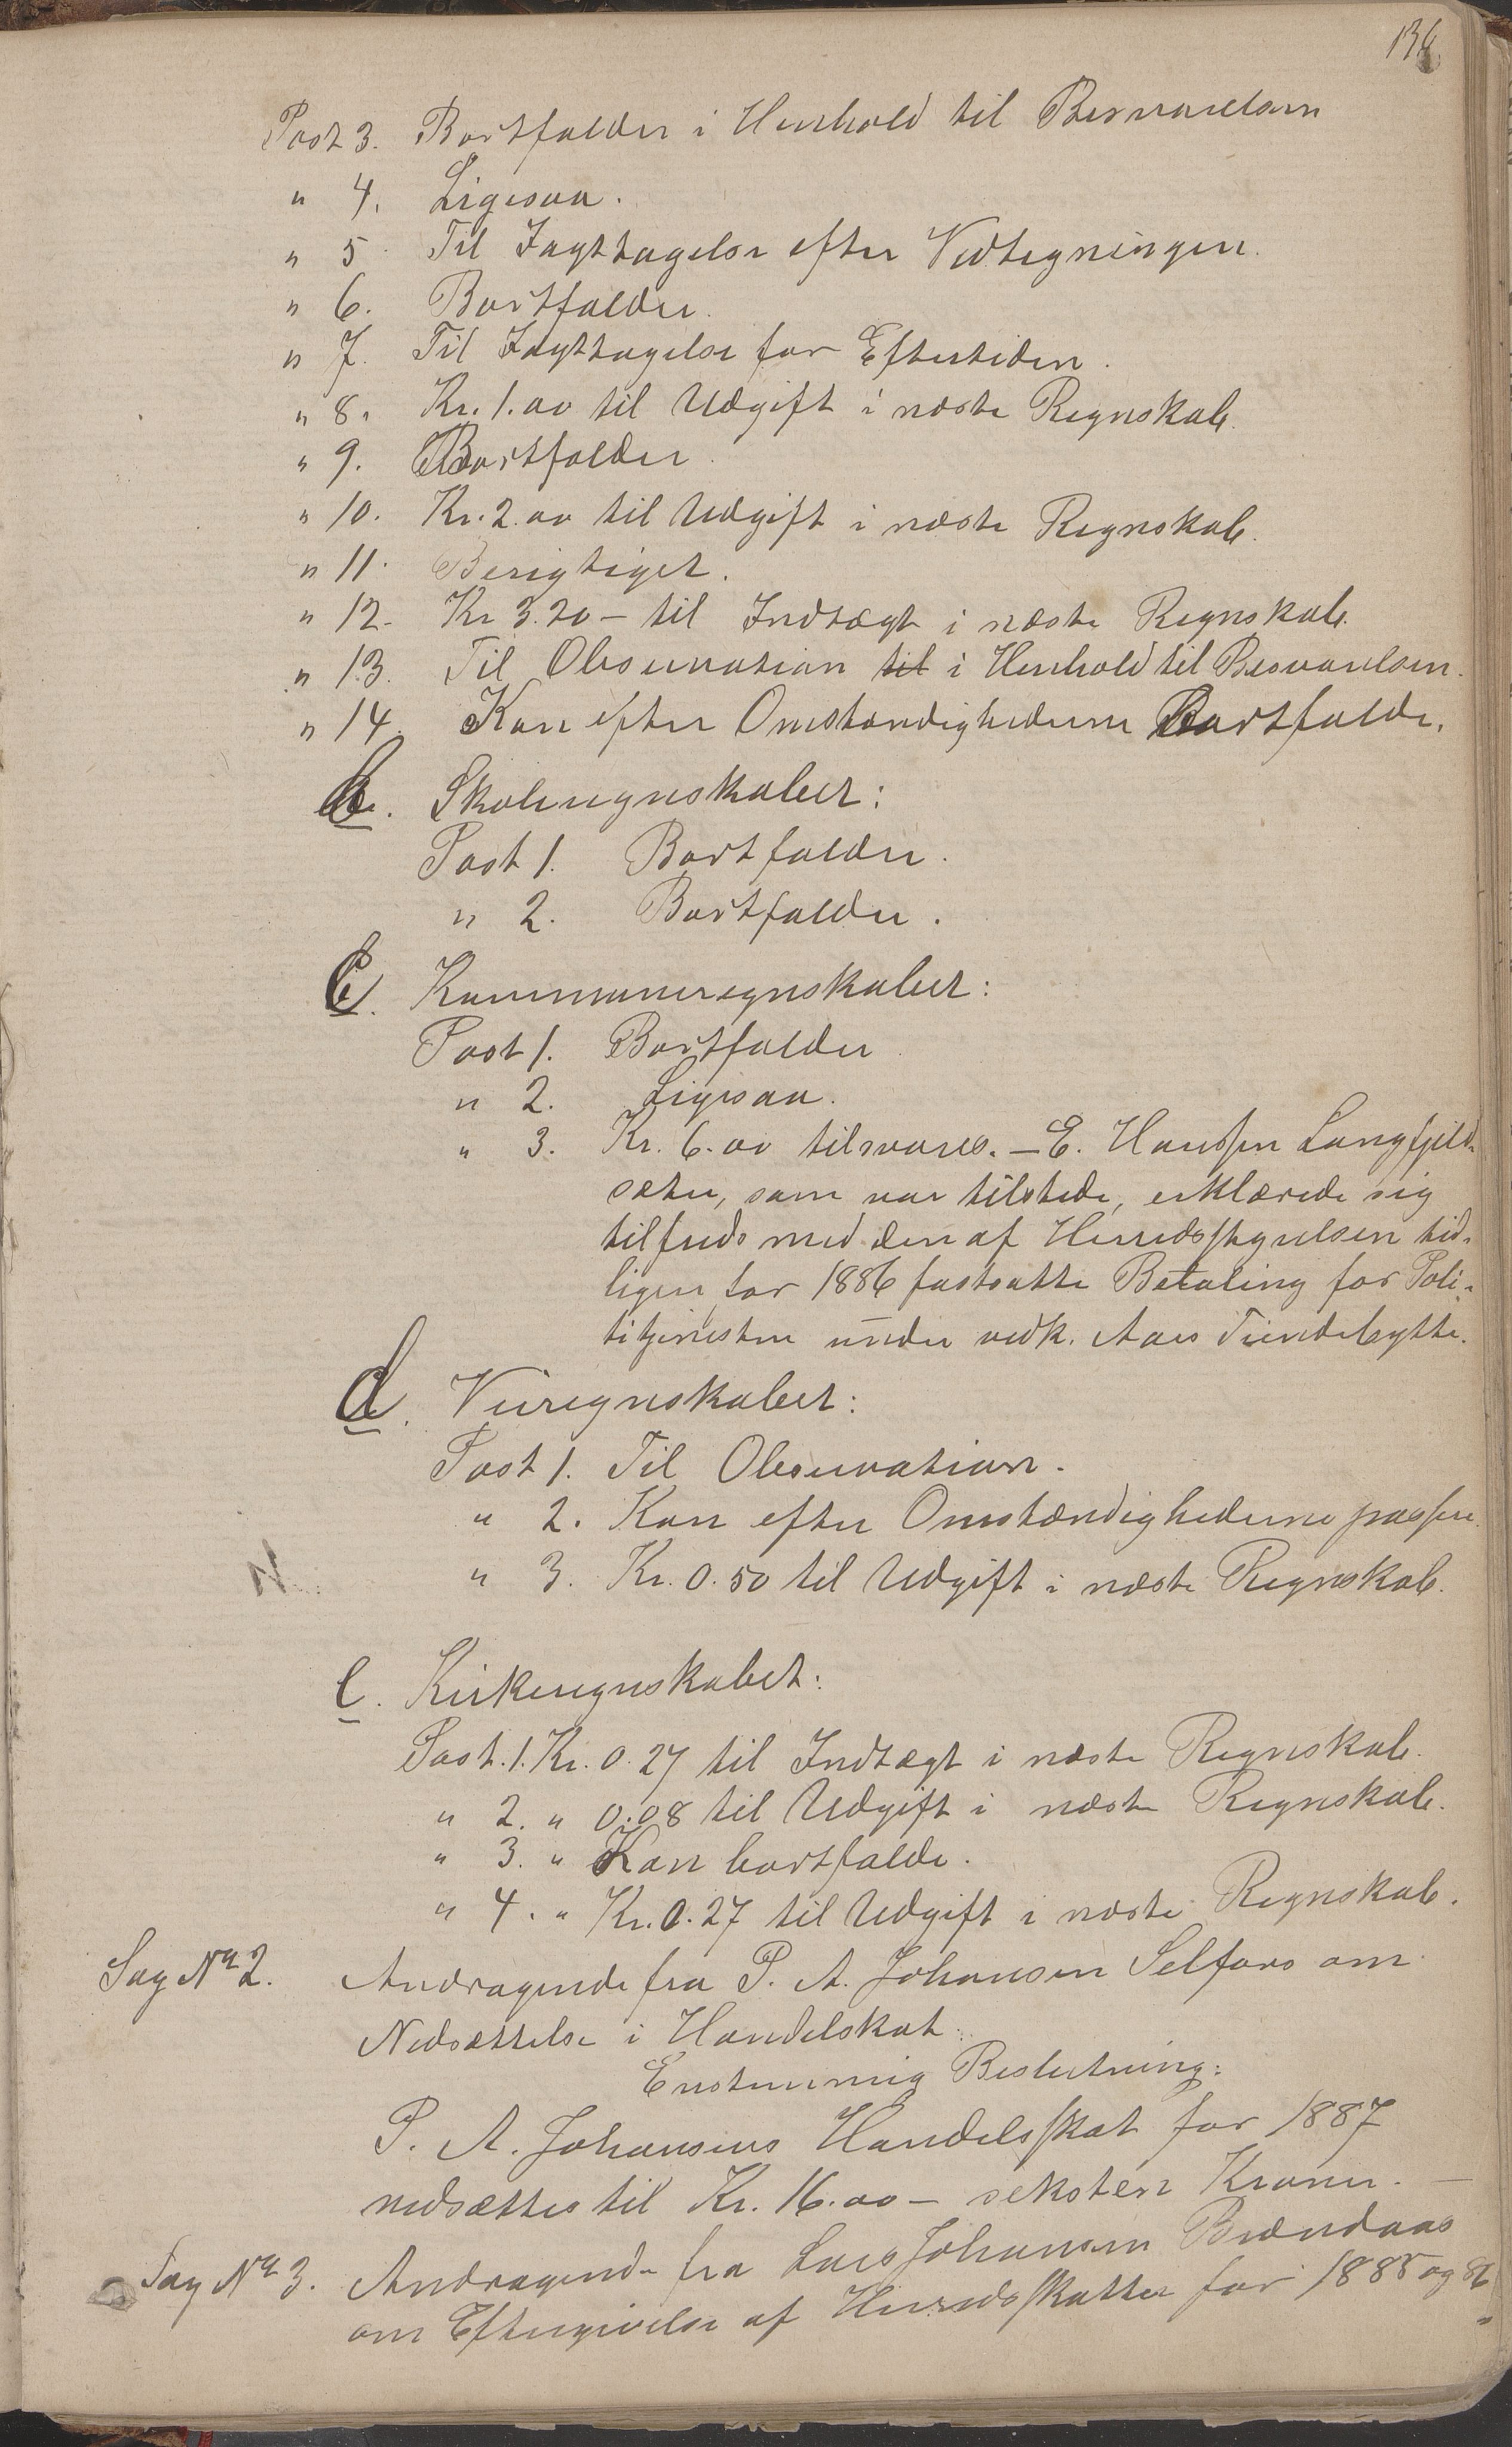 136
Post 3. Bortfalder i Henhold til Besvarelsen
" 4. Ligesaa.
" 5 Til Iagttagelse efter Vedtegningen.
" 6. Bortfalder.
" 7. Til Iagttagelse for Eftertiden.
" 8. Kr. 1.00 til Udgift i næste Regnskab.
" 9. Bortfalder.
" 10. Kr. 2.00 til Udgift i næste Regnskab.
" 11. Berigtiget.
" 12. Kr 3.20 – til Indtægt i næste Regnskab.
" 13. Til Observation til i Henhold til Besvarelsen.
" 14. Kan efter Omstændighederne Bortfalde.
b. Skoleregnskabet:
Post 1. Bortfalder.
" 2. Bortfalder.
c. Kommuneregnskabet:
Post 1. Bortfalder
" 2. Ligesaa.
" 3. Kr. 6.00 tilsvares. – E. Hanssen Langfjeld-
sæter, som var tilstede, erklærede sig
tilfreds med den af Herredsstyrelsen tid-
ligere for 1886 fastsatte Betaling for Poli-
titjenesten under vedk. Aars Tiendebytte.
d. Veiregnskabet:
Post 1. Til Observation.
" 2. Kan efter Omstændighederne passere.
N.
" 3. Kr. 0.50 til Udgift i næste Regnskab.
e. Kirkeregnskabet:
Post. 1. Kr. 0.27 til Indtægt i næste Regnskab.
" 2. " 0.08 til Udgift i næste Regnskab.
" 3. " Kan bortfalde.
" 4. " Kr. 0.27 til Udgift i næste Regnskab.
Sag No 2. Andragende fra P. A. Johansen Selfors om
Nedsættelse i Handelskat.
Enstemmig Beslutning:
P. A. Johansens Handelsskat for 1887
nedsættes til Kr. 16.00 – seksten Kroner. –
Sag No 3. Andragende fra Lars Johansen Brændaas
om Eftergivelse af Herredsskatter for 1885 og 86